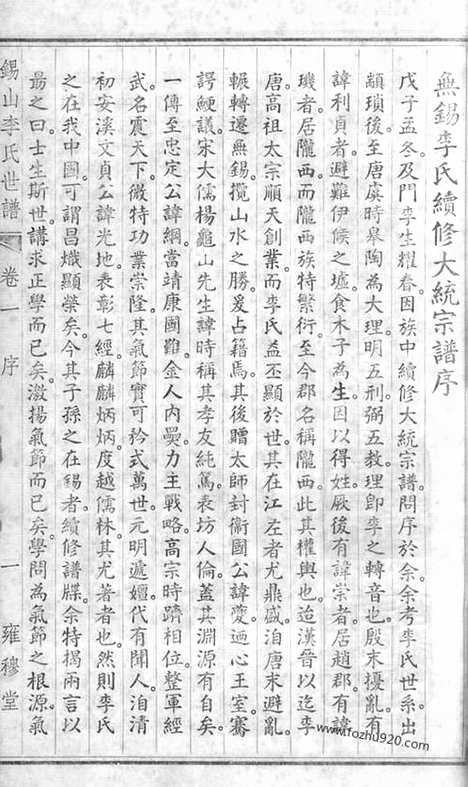 無錫李氏續修大統宗譜序
戊子孟冬及門李生耀春因族中續修大統宗譜問序於余余考李氏世系出
顓頊後至唐虞時皋陶為大理明五刑弼五教理即李之轉音也殷末擾亂有
諱利貞者避難伊侯之墟食木子為生因以得姓厥後有諱崇者居趙郡有諱
璣者居隴西而隴西族特繁衍至今郡名稱隴西此其權輿也迨漢晉以迄李
唐高祖太宗順天創業而李氏益丕顯於世其在江左者尤鼎盛洎唐末避亂
輾轉遷無錫攬山水之勝爰占籍焉其後贈太師封衛國公諱夔迺心王室謇
諤鯁議宋大儒楊龜山先生諱時稱其孝友純篤表坊人倫蓋其淵源有自矣
一傳至忠定公諱綱當靖康國難金人內㒍力主戰略高宗時躋相位整軍經
武名震天下微特功業崇隆其氣節實可矜式萬世元明遞嬗代有聞人洎清
初安溪文貞公諱光地表彰七經麟麟炳炳度越儒林其尤著者也然則李氏
之在我中國可謂昌熾顯榮矣今其子孫之在錫者續修譜牒余特揭兩言以
勗之曰士生斯世講求正學而已矣激揚氣節而已矣學問為氣節之根源氣
錫山李氏世譜
卷一
序
一
雍穆堂
www.fozhu920.com